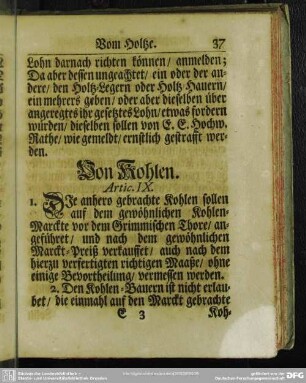 Vom Holtze. 37
Lohn darnach richten können/ anmelden;
Da aber dessen ungeachtet/ ein oder der an-
dere/ den Holtz-Legern oder Holtz-Hauern/
ein mehrers geben/ oder aber dieselben über
angeregtes ihr gesetztes Lohn/ etwas fordern
würden/ dieselben sollen von E. E. Hochw.
Rathe/ wie gemeldt/ ernstlich gestrafft wer-
den.
Von Kohlen.
Artic. IX.
1. DIe anhero gebrachte Kohlen sollen
auf dem gewöhnlichen Kohlen-
Marckte vor dem Grimmischen Thore/ an-
geführet/ und nach dem gewöhnlichen
Marckt-Preiß verkauffet/ auch nach dem
hierzu verfertigten richtigen Maaße/ ohne
einige Bevortheilung/ vermessen werden.
2. Den Kohlen-Bauern ist nicht erlau-
bet/ die einmahl auf den Marckt gebrachte
E 3 Koh-